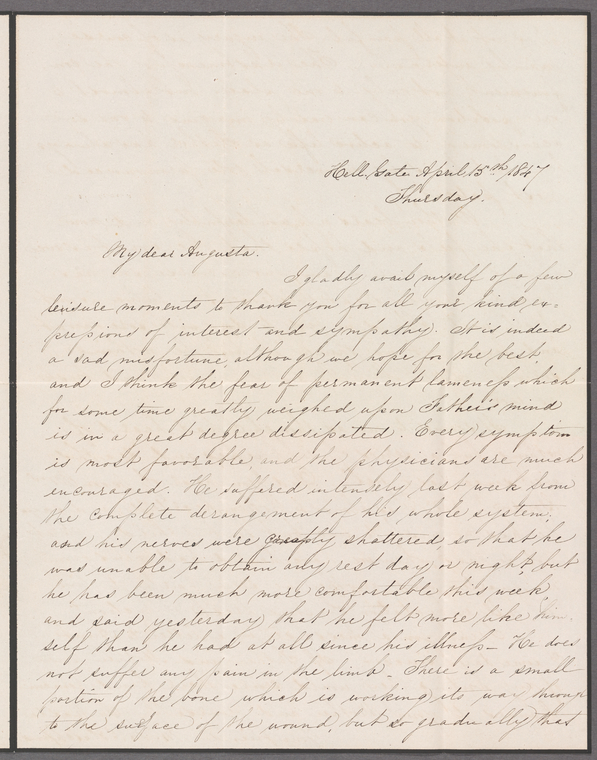 Hell Gate April 15th 1847
Thursday.
My dear Augusta.
I gladly avail myself of a few
leisure moments to thank you for all your kind ex-
pressions of interest and sympathy. It is indeed
a sad misfortune, although we hope for the best,
and I think the fear of permanent lameness which
for some time greatly weighed upon Father's mind
is in a great degree dissipated. Every symptom
is most favorable, and the physicians are much
encouraged. He suffered intensely last week from
the complete derangement of his whole system,
and his nerves were shattered so that he
was unable to obtain any rest day or night, but
he has been much more comfortable this week
and said yesterday that he felt more like him-
self than he had at all since his illness. He does
not suffer any pain in the limb. There is a small
portion of the bone which is working its way through
to the surface of the wound, but so gradually that